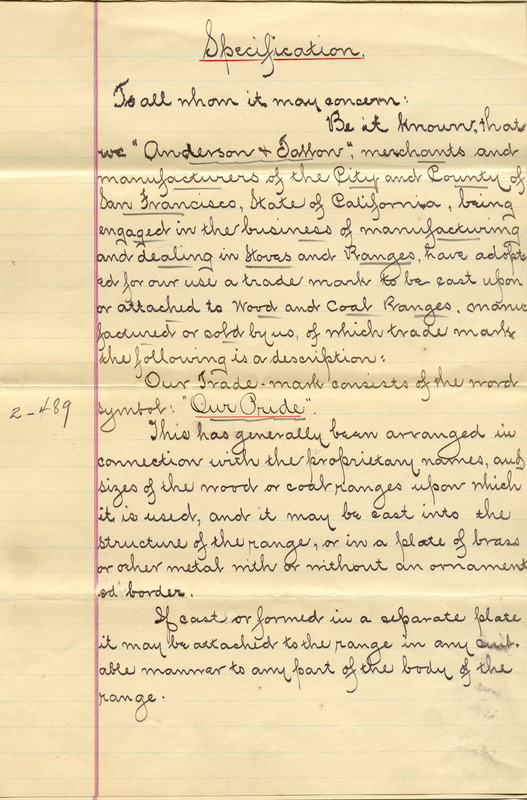 Specification.
To all whom it may concern:
Be it known, that
we "Anderson & Fallon", merchants and
manufacturers of the City and County of
San Francisco, State of California, being
engaged in the business of manufacturing
and dealing in Stoves and Ranges, have adopt
ed for our use a trade mark to be cast upon
or attached to Wood and Coal Ranges, manu
factured or sold by us, of which trade mark
the following is a description:
Our Trade-mark consists of the word
2-489
symbol: "Our Pride".
This has generally been arranged in
connection with the proprietary names, and
sizes of the wood or coal ranges upon which
it is used, and it may be cast into the
structure of the range, or in a plate of brass
or other metal with or without an ornament
ed border.
If cast or formed in a separate plate
it may be attached to the range in any suit-
able manner to any part of the body of the
range.